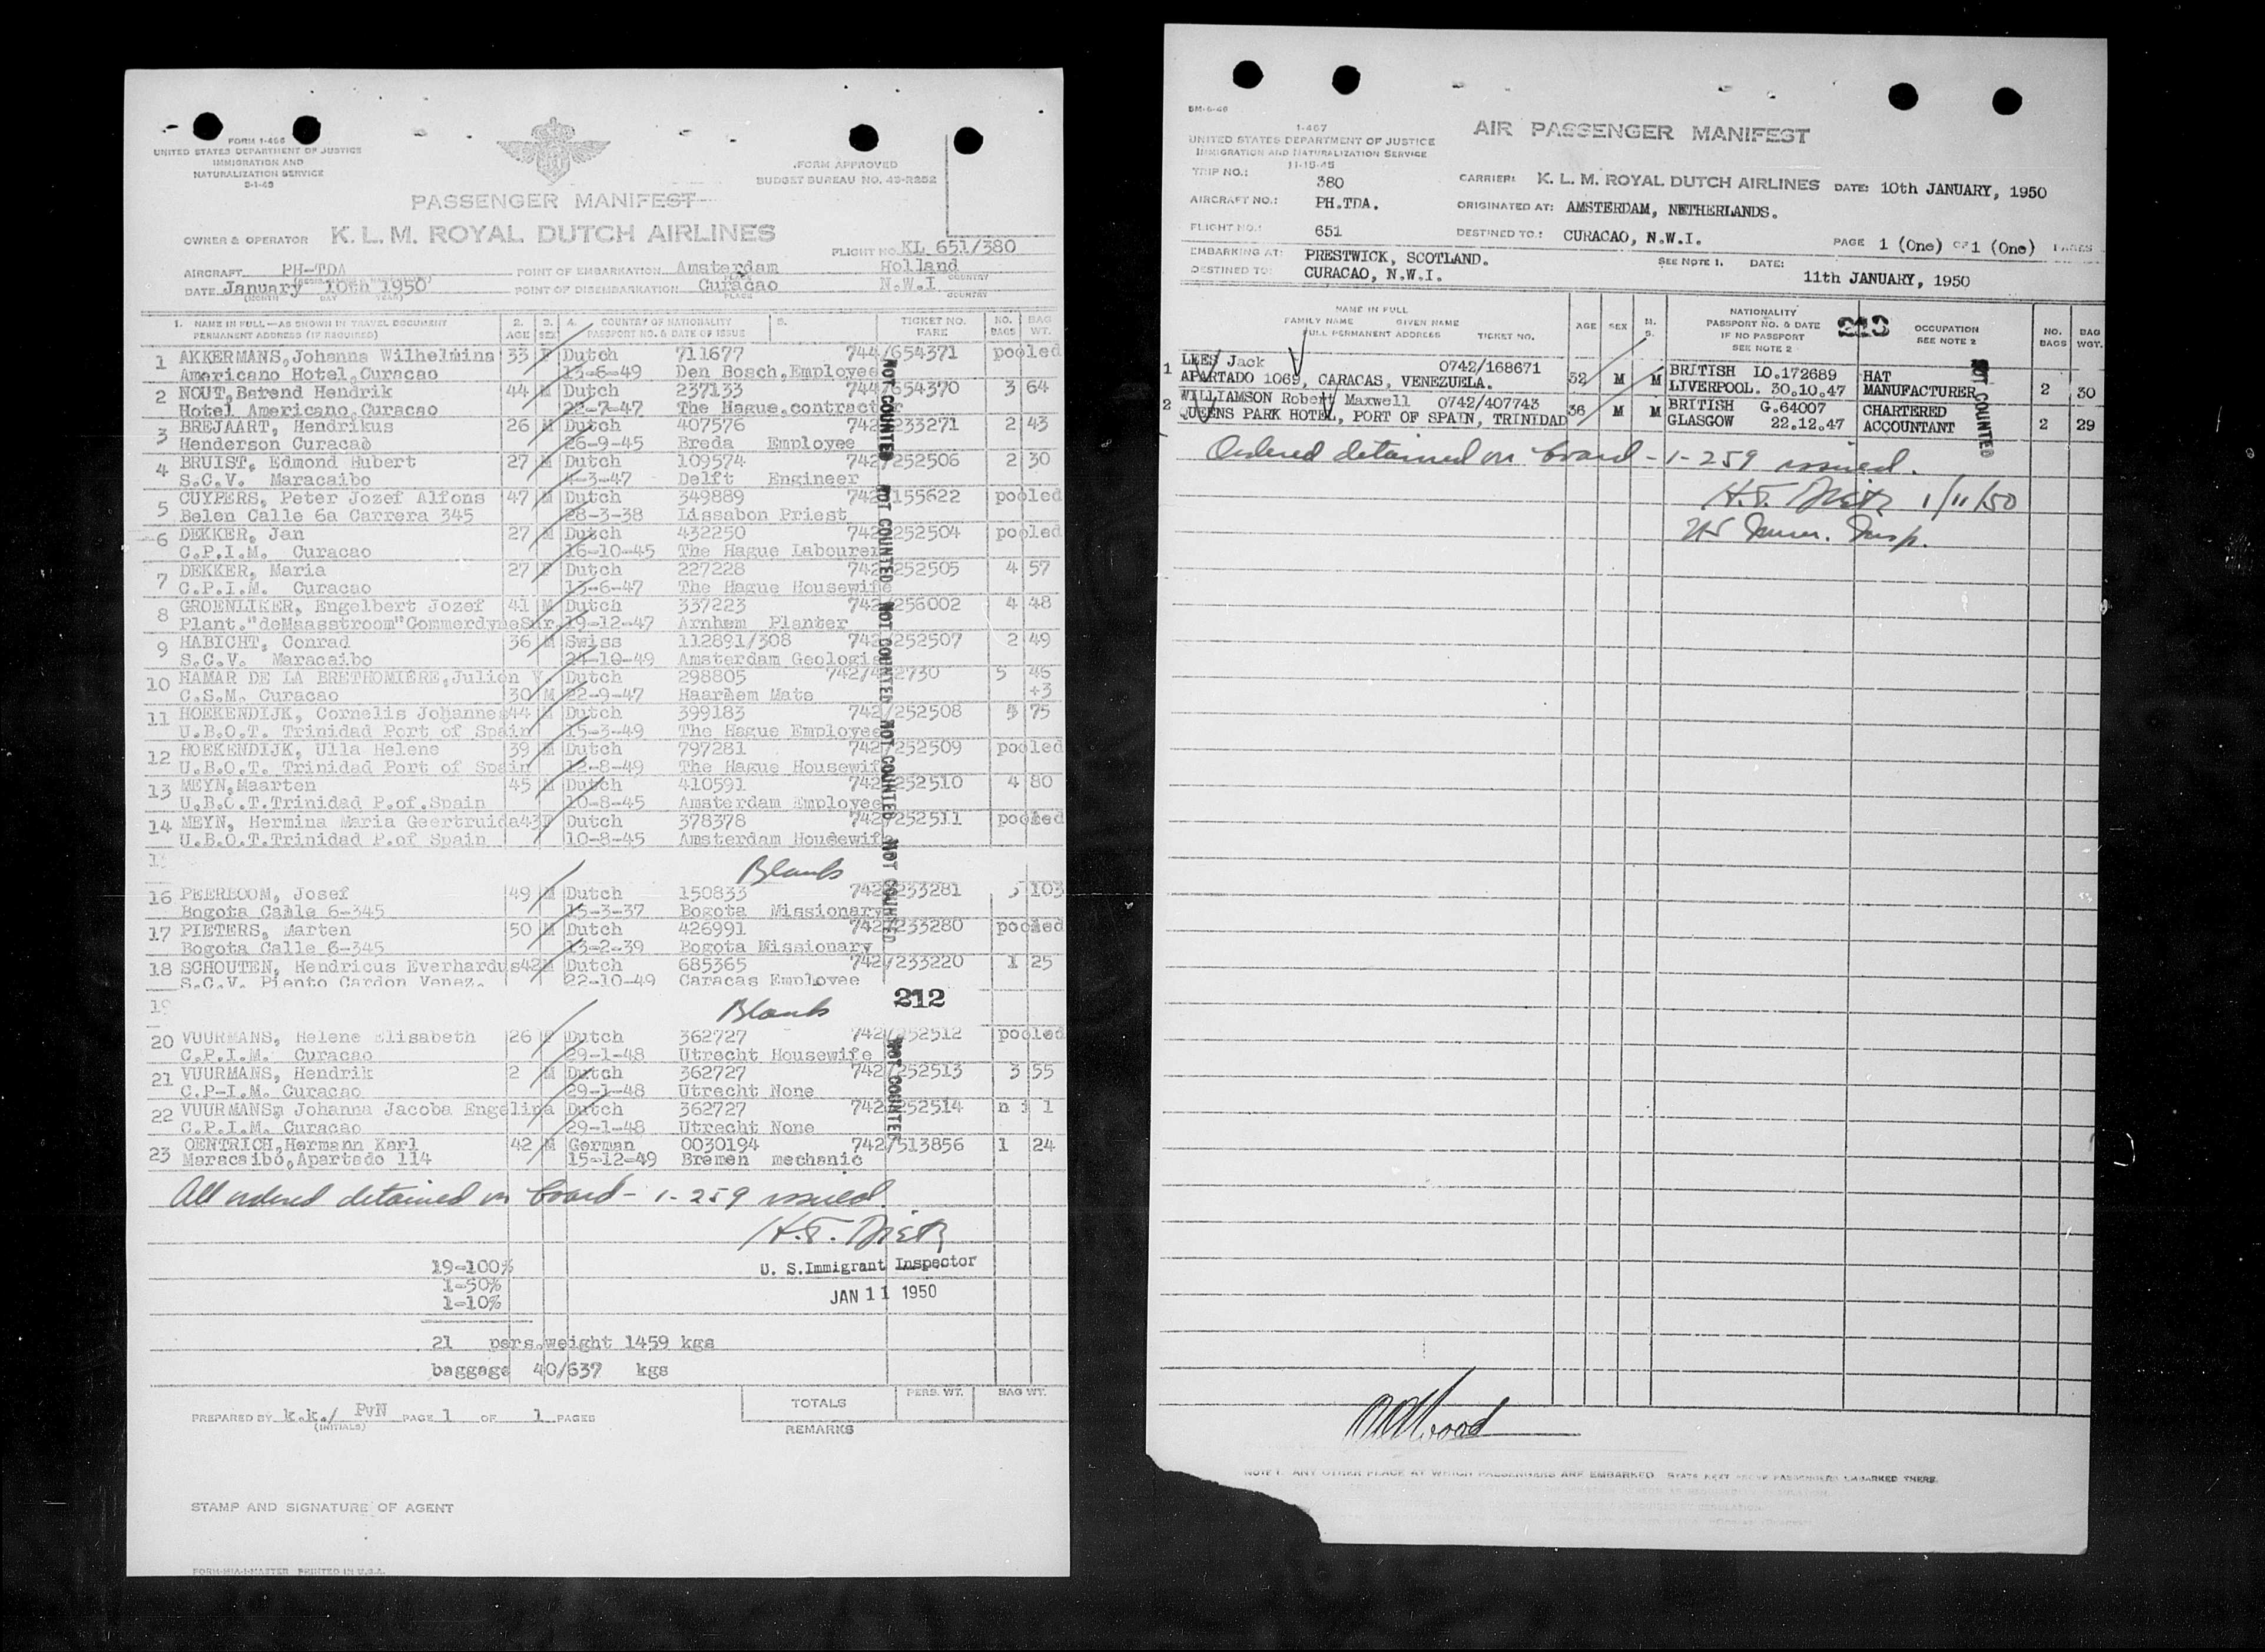 FORM I-466
UNITED STATES DEPARTMENT OF JUSTICE
IMMIGRATION AND
NATURALIZATION SERVICE
FORM APPROVED
BUDGET BUREAU NO. 43-R252
PASSENGER MANIFEST
OWNER & OPERATOR K. L. M. ROYAL DUTCH AIRLINES FLIGHT NO. KL 651/380
AIRCRAFT PH-TDA POINT OF EMBARKATION Amsterdam Holland
DATE January 10th 1950 POINT OF DISEMBARKATION Curacao N.W.I
1. NAME IN FULL—AS SHOWN IN TRAVEL DOCUMENT 2. 3. 4. COUNTRY OF NATIONALITY 5. TICKET NO. NO. BAG
PERMANENT ADDRESS (IF REQUIRED) AGE SEX PASSPORT NO. & DATE OF ISSUE FARE BAGS WT.
1 AKKERMANS, Johanna Wilhelmina 33 F Dutch 711677 744/654371 pooled
Americano Hotel, Curacao 13-6-49 Den Bosch, Employee
2 NOUT, Barend Hendrik 44 M Dutch 237133 744/654370 3 64
Hotel Americano, Curacao 22-7-47 The Hague, contractor
3 BREJAART, Hendrikus 26 M Dutch 407576 742/233271 2 43
Henderson Curacao 26-9-45 Breda Employee
4 BRUIST, Edmond Hubert 27 M Dutch 109574 742/252506 2 30
S.C.V. Maracaibo 4-3-47 Delft Engineer
5 CUYPERS, Peter Jozef Alfons 47 M Dutch 349889 742/155622 pooled
Belen Calle 6a Carrera 345 28-3-38 Lissabon Priest
6 DEKKER, Jan 27 M Dutch 432250 742/252504 pooled
C.P.I.M. Curacao 16-10-45 The Hague Labourer
7 DEKKER, Maria 27 F Dutch 227228 742/252505 4 57
C.P.I.M. Curacao 13-6-47 The Hague Housewife
8 GROENLIKER, Engelbert Jozef 41 M Dutch 337223 742/256002 4 48
Plant."deMaasstroom"CommerdyneSur. 19-12-47 Arnhem Planter
9 HABICHT, Conrad 36 M Swiss 112891/308 742/252507 2 49
S.C.V. Maracaibo 24-10-49 Amsterdam Geologis
10 HAMAR DE LA BRETHOMIÈRE, Julien V. Dutch 298805 742/4 2730 5 46
C.S.M. Curacao 30 M 22-9-47 Haarlem Mate +3
11 HOEKENDIJK, Cornelis Johannes 44 M Dutch 399183 742/252508 5 75
U.B.O.T. Trinidad Port of Spain 15-3-49 The Hague Employee
12 HOEKENDIJK, Ulla Helene 39 M Dutch 797281 742/252509 pooled
U.B.O.T. Trinidad Port of Spain 12-8-49 The Hague Housewif
13 MEYN, Maarten 45 M Dutch 410591 742/252510 4 80
U.B.O.T. Trinidad P.of.Spain 10-8-45 Amsterdam Employee
14 MEYN, Hermina Maria Geertruida 43 F Dutch 378378 742/252511 pooled
U.B.O.T. Trinidad P.of Spain 10-8-45 Amsterdam Housewif
15 Blank
16 PEERBOOM, Josef 49 M Dutch 150833 742/233281 5 103
Bogota Calle 6-345 15-3-37 Bogota Missionary
17 PIETERS, Marten 50 M Dutch 426991 742/233280 pooled
Bogota Calle 6-345 13-2-39 Bogota Missionary
18 SCHOUTEN, Hendricus Everhardus 42 M Dutch 685365 742/233220 1 25
S.C.V. Piento Cardon Venez. 22-10-49 Caracas Employee
19 Blank 212
20 VUURMANS, Helene Elisabeth 26 F Dutch 362727 742/252512 pooled
C.P.I.M. Curacao 29-1-48 Utrecht Housewife
21 VUURMANS, Hendrik 2 M Dutch 362727 742/252513 3 55
C.P-I.M. Curacao 29-1-48 Utrecht None
22 VUURMANS, Johanna Jacoba Engelina Dutch 362727 742/252514 n i l
C.P.I.M. Curacao 29-1-48 Utrecht None
23 OENTRICH, Hermann Karl 42 M German 0030194 742/513856 1 24
Maracaibo, Apartado 114 15-12-49 Bremen mechanic
NOT COUNTED NOT COUNTED NOT COUNTED NOT COUNTED NOT COUNTED NOT COUNTED
All ordered detained on board - I-259 issued.
H.T. Dietz
U. S. Immigrant Inspector
JAN 11 1950
19-100%
1-50%
1-10%
21 pers.weight 1459 kgs
baggage 40/637 kgs
PREPARED BY k.k./ PvN PAGE 1 OF 1 PAGES
(INITIALS)
TOTALS PERS. WT. BAG WT.
REMARKS
STAMP AND SIGNATURE OF AGENT
PRINTED IN U.S.A.
BM-6-46
I-467
UNITED STATES DEPARTMENT OF JUSTICE
IMMIGRATION AND NATURALIZATION SERVICE
11-15-45
AIR PASSENGER MANIFEST
TRIP NO.: 380 CARRIER: K. L. M. ROYAL DUTCH AIRLINES DATE: 10th JANUARY, 1950
AIRCRAFT NO.: PH.TDA. ORIGINATED AT: AMSTERDAM, NETHERLANDS.
FLIGHT NO.: 651 DESTINED TO.: CURACAO, N.W.I. PAGE 1 (One) OF 1 (One) PAGES
EMBARKING AT: PRESTWICK, SCOTLAND. SEE NOTE 1. DATE:
DESTINED TO: CURACAO, N.W.I. 11th JANUARY, 1950
NAME IN FULL
FAMILY NAME GIVEN NAME
FULL PERMANENT ADDRESS TICKET NO.
AGE SEX M. S.
NATIONALITY
PASSPORT NO. & DATE
IF NO PASSPORT
SEE NOTE 2
213
OCCUPATION
SEE NOTE 2
NO. BAGS
BAG WGT.
1 LEES Jack 0742/168671 32 M M BRITISH LO.172689 HAT
APARTADO 1069, CARACAS, VENEZUELA. LIVERPOOL. 30.10.47 MANUFACTURER 2 30
2 WILLIAMSON Robert Maxwell 0742/407743 36 M M BRITISH G.64007 CHARTERED
QUEENS PARK HOTEL, PORT OF SPAIN, TRINIDAD GLASGOW 22.12.47 ACCOUNTANT 2 29
NOT COUNTED
Ordered detained on board - I-259 issued.
H.T. Dietz 1/11/50
US Immi. Insp.
NOTE 1. ANY OTHER PLACE AT WHICH PASSENGERS ARE EMBARKED STATE NEXT ABOVE PASSENGERS EMBARKED THERE.